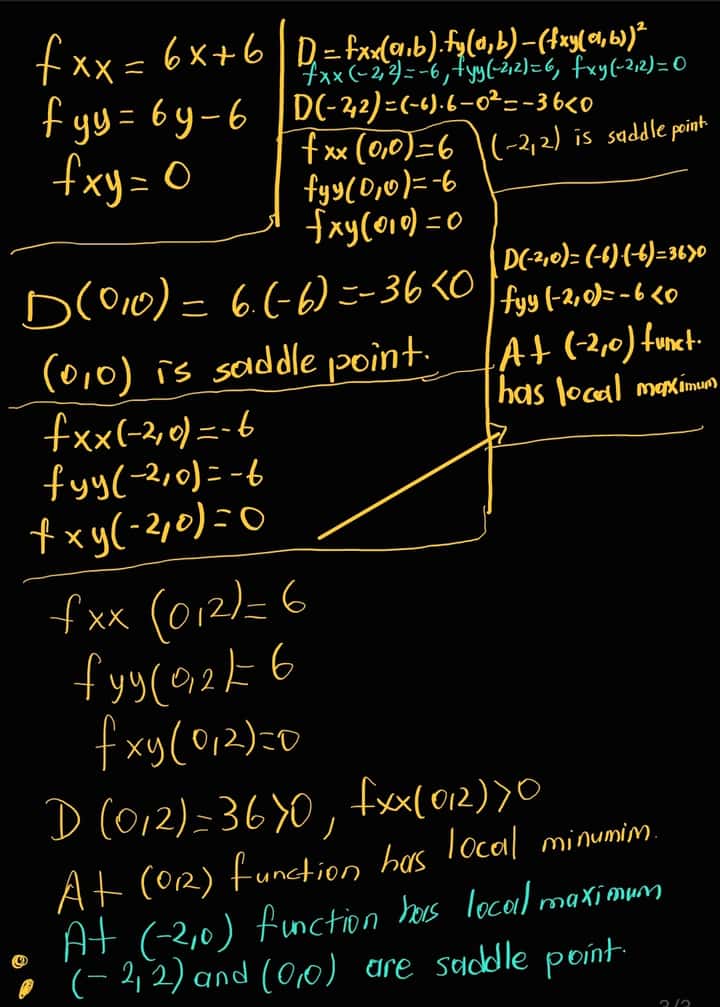 fxx = 6x+6
fyy = 6y-6
fxy = 0
D = fxx(a,b).fy(a,b)-(fxy(a,b))²
fxx(-2,2)=-6, fyy(-2,2)=6, fxy(-2,2)=0
D(-2,2)=(-6).6-0²=-36<0
(-2,2) is saddle point.
fxx(0,0)=6
fyy(0,0)=-6
fxy(0,0)=0
D(0,0) = 6.(-6) =-36<0
(0,0) is saddle point.
fxx(-2,0)=-6
fyy(-2,0)=-6
fxy(-2,0)=0
D(-2,0)=(-6).(-6)=36>0
fyy(-2,0)=-6<0
At (-2,0) funct.
has local maximum
fxx (0,2)=6
fyy(0,2)=6
fxy(0,2)=0
D (0,2)=36>0, fxx(0,2)>0
At (0,2) function has local minumim.
At (-2,0) function has local maximum
(-2,2) and (0,0) are saddle point.